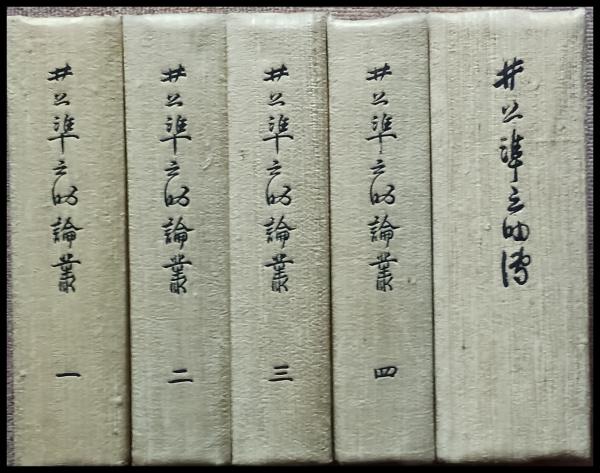 井上準之助論叢 一
井上準之助論叢 二
井上準之助論叢 三
井上準之助論叢 四
井上準之助傳